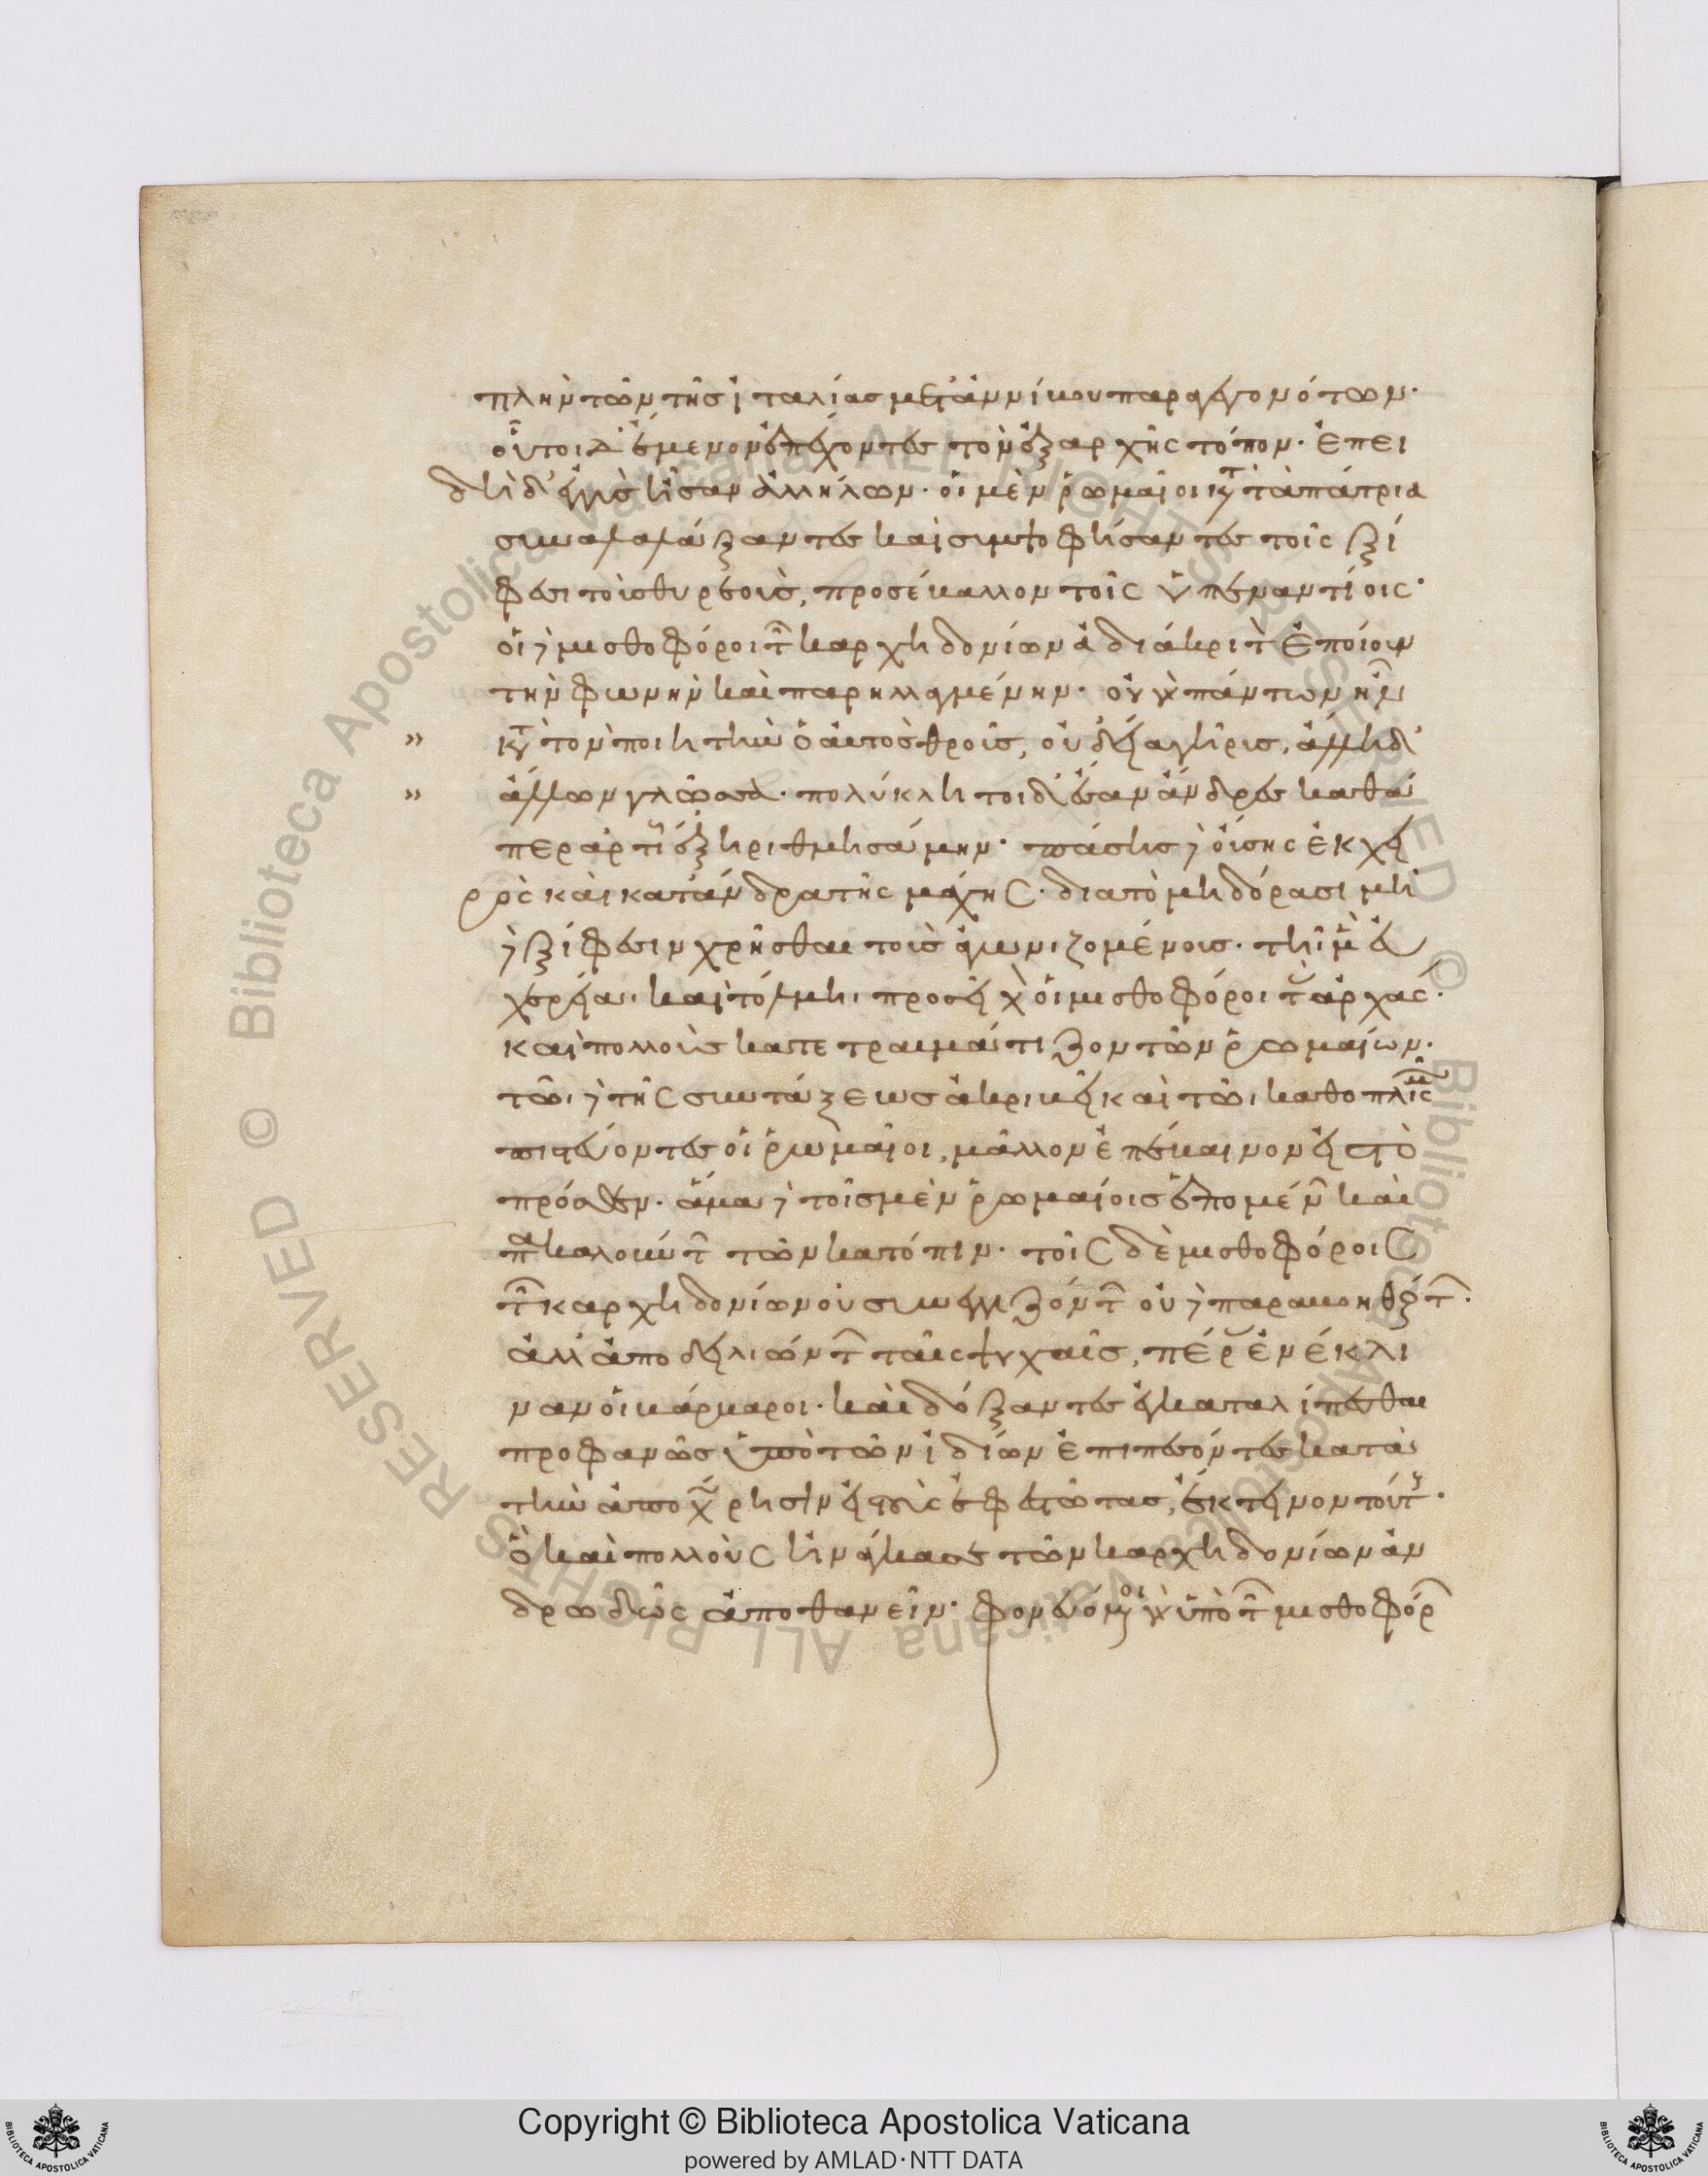 πλὴν τῶν τῆς ἰταλίας μετ' ἀννίβου παραγεγονότων·
οὗτοι δ' ἔμενον ἐπέχοντες τὸν ἐξαρχῆς τόπον· ἐπει
δὴ δ' ἐγγὺς ἦσαν ἀλλήλων· οἱ μὲν ῥωμαῖοι κτ τὰ πάτρια
συναλαλάξαντες καὶ συμψοφήσαντες τοῖς ξί
φεσι τοὺς θυρεοὺς, προσέβαλλον τοῖς ὑπεναντίοις·
οἱ δὲ μισθοφόροι τ καρχηδονίων ἀδιάκριτ ἐποίουν
τὴν φωνὴν καὶ παρηλλαγμένην· οὐ γὰρ πάντων ἦν
» κτ τὸν ποιητὴν ὁ αὐτὸς θροῦς, οὐδ' εἴα γῆρις, ἄλλη δ'
» ἄλλων γλῶσσα· πολύκλητοι δ' ἔσαν ἄνδρες καθά
περ ἀρτι ἐξηριθμησάμην· πάσης δ' οἴσης ἐκ χει
ρὸς καὶ κατ' ἄνδρα τῆς μάχης· διὰ τὸ μὴ δόρασι μη
δὲ ξίφεσιν χρῆσθαι τοὺς ἀγωνιζομένους· τῆι μὲν εὐ
χερείαι καὶ τόλμηι προεῖχον οἱ μισθοφόροι τὰς ἀρχάς·
καὶ πολλοὺς κατετραυμάτιζον τῶν ῥωμαίων·
τῶι δὲ τῆς συντάξεως ἀκριβεῖ καὶ τῶι καθοπλισμ
πιστεύοντες οἱ ῥωμαῖοι, μᾶλλον ἐπέβαινον εἰς τὸ
πρόσθεν· ἅμα δὲ τοῖς μὲν ῥωμαίοις ἑπομέν καὶ
πακαλούντ τῶν κατόπιν· τοῖς δὲ μισθοφόροις
τ καρχηδονίων οὐ συνεγγιζόντ οὐδὲ παραβοηθούντ·
ἀλλ' ἀποδειλιώντ ταῖς ψυχαῖς, πέρας ἐνέκλι
ναν οἱ βάρβαροι· καὶ δόξαντες ἐγκαταλίπεσθαι
προφανῶς ὑπὸ τῶν ἰδίων ἐπιπεσόντες κατὰ
τὴν ἀποχώρησιν εἰς τοὺς ἐφεστῶτας, ἔκτεινον τούτους·
ὃ καὶ πολλοὺς ἠνάγκασε τῶν καρχηδονίων ἀν
δρωδῶς ἀποθανεῖν· φονευόμενοι γὰρ ὑπὸ τ μισθοφόρ